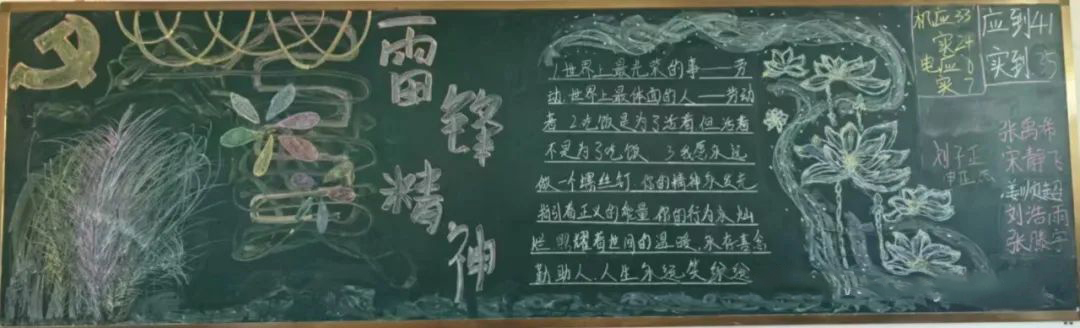 雷锋精神
1世界上最光荣的事——劳
动.世界上最体面的人——劳动
者 2吃饭是为了活着,但活着
不是为了吃饭 3我愿永远
做一个螺丝钉.你的精神永发光
指引着正义的能量.你的行为永灿
烂 照耀着世间的温暖.永存善念
勤助人.人生永远笑缤纷
机应33
实24
电应8
实7
应到41
实到35
刘子正
张禹希
宋静飞
姜顺超
刘浩雨
张滕宇